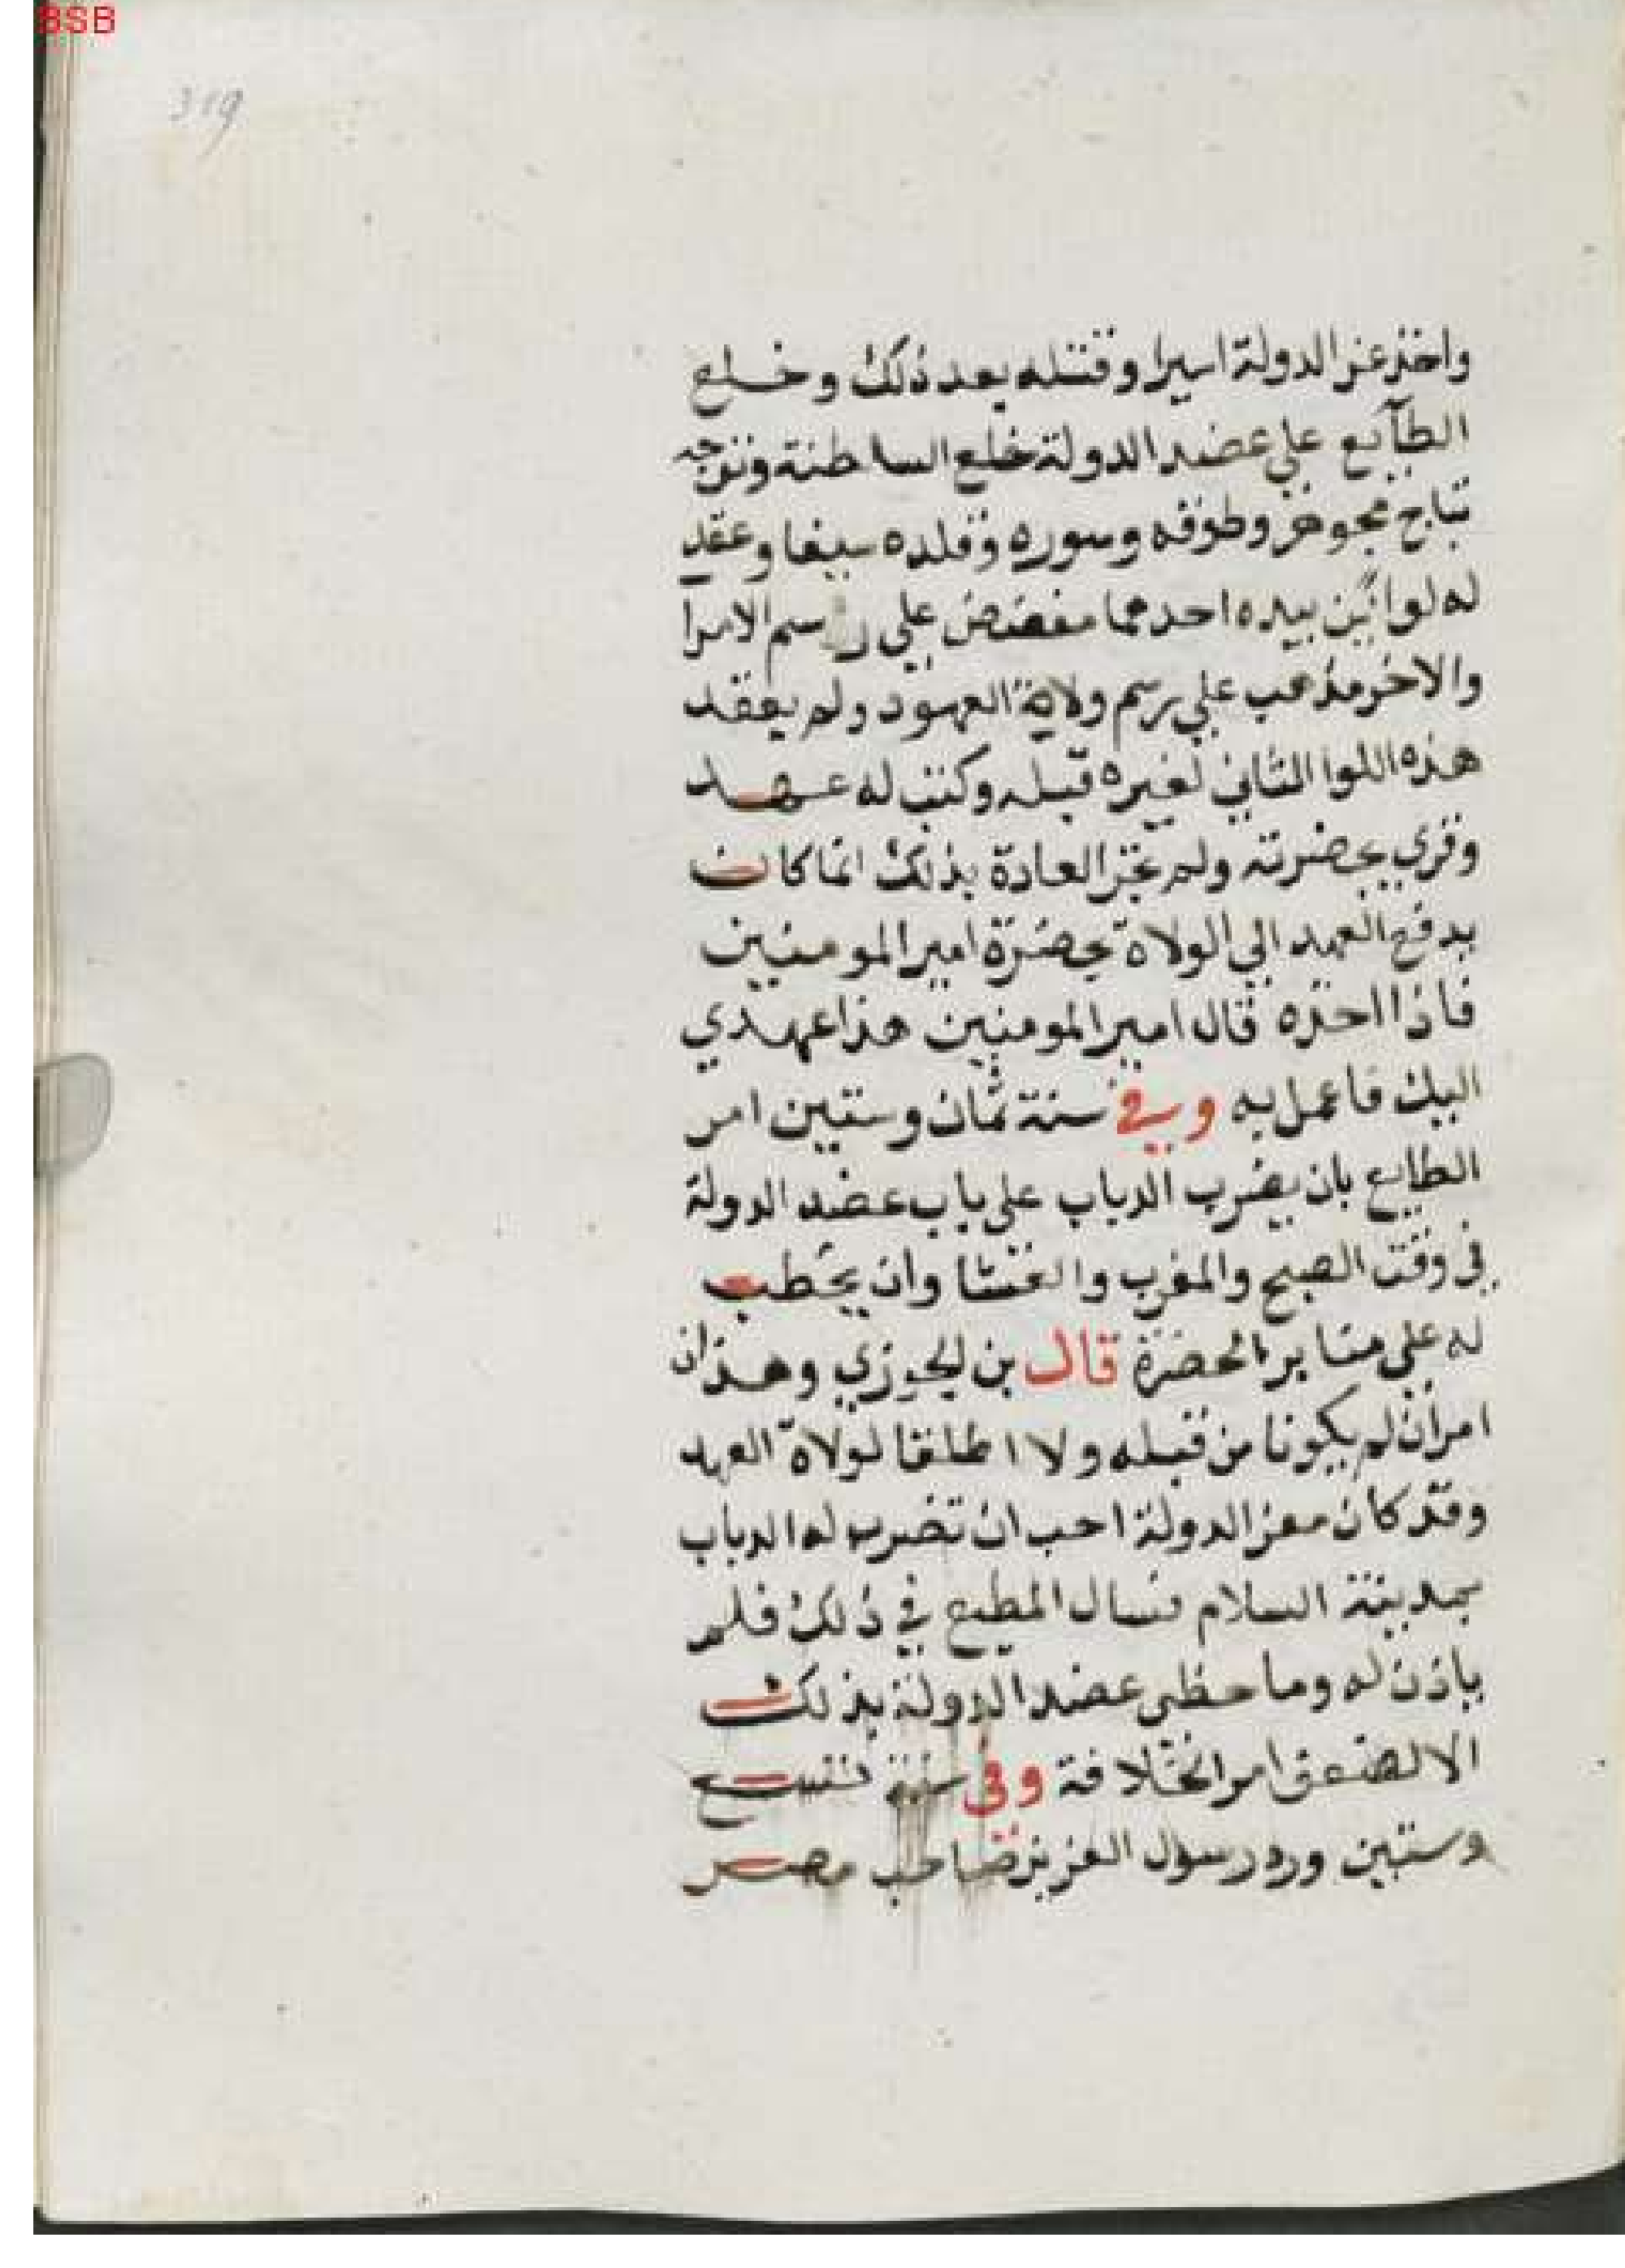 BSB
319
واخذ عز الدولة اسيرا وقتله بعد ذلك وخلع
الطآيع علي عضد الدولة خلع السلطنة وتوجه
بتاج مجوهر وطوقه وسوره وقلده سيفا وعقد
له لوائين بيده احدهما مفضض علي رسم الامرا
والاخر مذهب علي رسم ولاية العهود ولم يعقد
هذه اللوا الثاني لغيره قبله وكتب له عهد
وقري بحضرته ولم تجز العادة بذلك انما كان
يدفع العهد الي الولاة بحضرة امير المومنين
فاذا اخذه قال امير المومنين هذا عهدي
اليك فاعمل به وفي سنة ثمان وستين امر
الطايع بان يضرب الدباب علي باب عضد الدولة
في وقت الصبح والمغرب والعشا وان يخطب
له علي منابر الحضرة قال بن الجوزي وهذان
امران لم يكونا من قبله ولا اطلقا لولاة العهد
وقد كان معز الدولة احب ان تضرب له الدباب
بمدينة السلام فسال المطيع في ذلك فلم
ياذن له وما حظي عضد الدولة بذلك
الا لضعف امر الخلافة وفي سنة تسع
وستين ورد رسول العزيز صاحب مصر